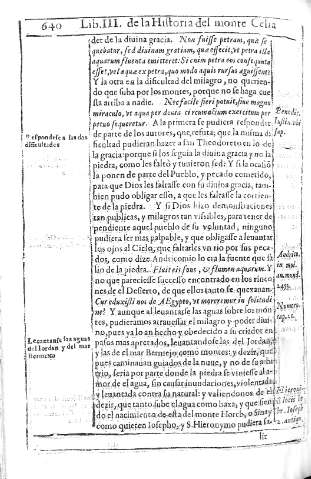 640 Lib. III. de la Historia del monte Celia
der de la diuina gracia. Non fuisse petram, quæ se
quebatur, sed diuinam gratiam, quæ effecit, vt petra illa
aquarum fluenta emitteret: Si enim petra eos consequuta
esset, vel aqua ex petra, quo modo aquis rursus
Y la otra en la dificultad del milagro, no querien-
do que suba por los montes, porque no se haga cues-
ta arriba a nadie. Nec facile fieri potuit, sine magno
miraculo, vt aqua per deuia exercitum per
petuo sequeretur. A la primera se pudiera responder
de parte de los autores, que refuta; que la misma di-
ficultad pudieran hazer a san Theodoreto en lo de
la gracia: porque si los seguia la diuina gracia y no la
piedra, como les faltò y tuuieron sed: Y si la ocasiò
la ponen de parte del Pueblo, y pecado cometido,
para que Dios les faltasse con su diuina gracia, tam-
bien pudo obligar ello, a que les faltasse la corrien-
te de la piedra. Y si Dios hizo demonstraciones
tan publicas, y milagros tan visibles, para tener de
pendiente aquel pueblo de su voluntad, ninguno
pudiera ser mas palpable, y que obligasse a leuantar
los ojos al Cielo, que faltarles vn rio por sus peca-
dos, como dize Andricomio lo era la fuente que sa
lio de la piedra. & flumen aquarum. Y
no que pareciesse successo encontrado en los rinco
nes de el Desierto, de que ellos tanto se quexauan.
Cur eduxisti nos de Ægypto, vt moreremur in solitudi
ne? Y aunque al leuantarse las aguas sobre los mon
tes, pudieramos atrauessar el milagro y poder diui-
no, pues ya lo an hecho y obedecido a su criador en
passos mas apretados, leuantandose las del Iordan,
y las de el mar Bermejo, como montes: y dezir, que
pues caminauan guiados de la nuue, y no de su ar-
trio, seria por parte donde la piedra se viniesse al a-
mor de el agua, sin causar inundaciones, violentada
y leuantada contra su natural: y valiendonos de el
dezir, que tanto sube el agua como baxa, y que sien
do el nacimiento de esta del monte Horeb, o Sina, y
como quieren Iosepho, y S. Hieronymo pudiera su-
Respondese a las dos
dificultades
Leuantanse las aguas
del Iordan y del mar
Bermejo
Numero.